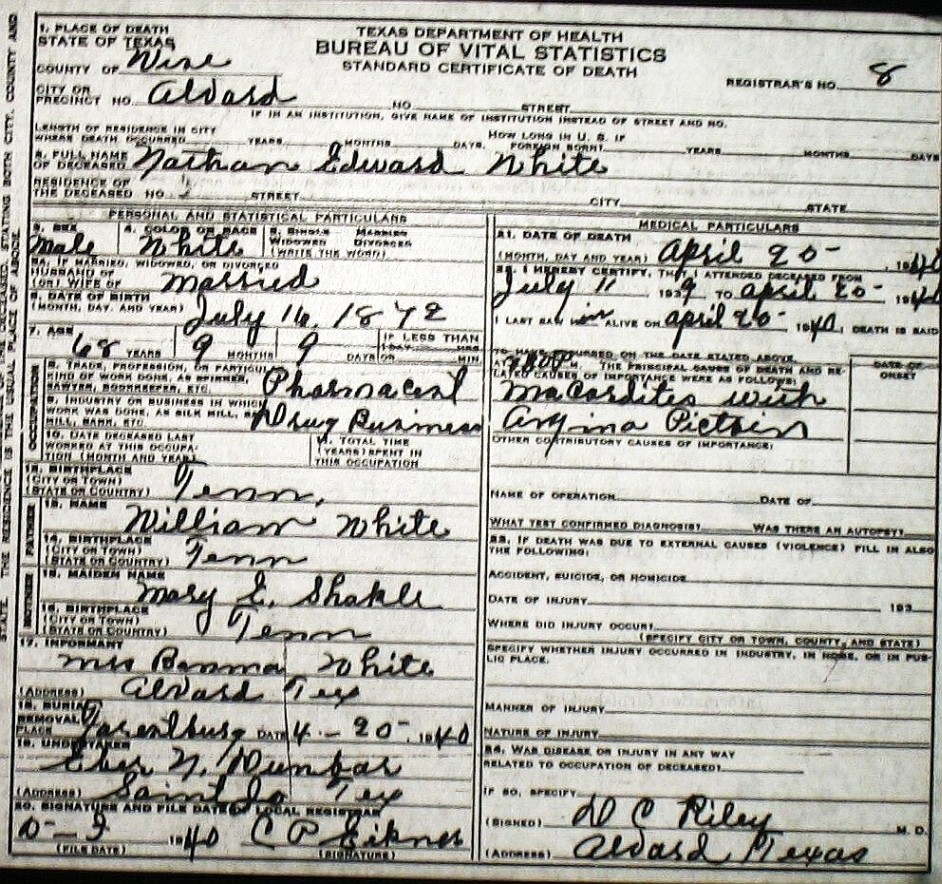 TEXAS DEPARTMENT OF HEALTH
BUREAU OF VITAL STATISTICS
STANDARD CERTIFICATE OF DEATH
1. PLACE OF DEATH
STATE OF TEXAS
COUNTY OF Wise
REGISTRAR'S NO. 8
CITY OR
PRECINCT NO. Alvard
NO. STREET
IF IN AN INSTITUTION, GIVE NAME OF INSTITUTION INSTEAD OF STREET AND NO.
LENGTH OF RESIDENCE IN CITY
WHERE DEATH OCCURRED YEARS MONTHS DAYS. HOW LONG IN U. S. IF FOREIGN BORN? YEARS MONTHS DAYS
2. FULL NAME
OF DECEASED Nathan Edward White
RESIDENCE OF
THE DECEASED NO. STREET CITY STATE
PERSONAL AND STATISTICAL PARTICULARS
3. SEX 4. COLOR OR RACE 5. SINGLE MARRIED
WIDOWED DIVORCED
(WRITE THE WORD)
Male White
5A. IF MARRIED, WIDOWED, OR DIVORCED
HUSBAND OF
(OR) WIFE OF Married
6. DATE OF BIRTH
(MONTH, DAY AND YEAR) July 16, 1872
7. AGE IF LESS THAN
68 YEARS 9 MONTHS 9 DAYS OR MIN.
OCCUPATION
8. TRADE, PROFESSION, OR PARTICULAR
KIND OF WORK DONE, AS SPINNER,
SAWYER, BOOKKEEPER, ETC. Pharmacist
9. INDUSTRY OR BUSINESS IN WHICH
WORK WAS DONE, AS SILK MILL,
MILL, BANK, ETC. Drug Business
10. DATE DECEASED LAST
WORKED AT THIS OCCUPATION
(MONTH AND YEAR)
11. TOTAL TIME
(YEARS) SPENT IN
THIS OCCUPATION
12. BIRTHPLACE
(CITY OR TOWN)
(STATE OR COUNTRY) Tenn.
FATHER
13. NAME
William White
14. BIRTHPLACE
(CITY OR TOWN)
(STATE OR COUNTRY) Tenn
MOTHER
15. MAIDEN NAME
Mary E. Shakle
16. BIRTHPLACE
(CITY OR TOWN)
(STATE OR COUNTRY) Tenn
17. INFORMANT
Mrs White
(ADDRESS) Alvard Tex
18. BURIAL
REMOVAL
PLACE DATE 4-20-1940
19. UNDERTAKER
Eber N. Dunbar
(ADDRESS) Saint Jo Tex
20. SIGNATURE AND FILE DATE OF LOCAL REGISTRAR
1940 C P
(FILE DATE) (SIGNATURE)
MEDICAL PARTICULARS
21. DATE OF DEATH
(MONTH, DAY AND YEAR) April 20- , 1940
22. I HEREBY CERTIFY, THAT I ATTENDED DECEASED FROM
July 11 1939 TO April 20- 1940
I LAST SAW him ALIVE ON April 20- 1940, DEATH IS SAID
TO HAVE OCCURRED ON THE DATE STATED ABOVE,
AT M. THE PRINCIPAL CAUSE OF DEATH AND RELATED CAUSES OF IMPORTANCE WERE AS FOLLOWS:
DATE OF
ONSET
with
Angina
OTHER CONTRIBUTORY CAUSES OF IMPORTANCE:
NAME OF OPERATION DATE OF
WHAT TEST CONFIRMED DIAGNOSIS? WAS THERE AN AUTOPSY?
23. IF DEATH WAS DUE TO EXTERNAL CAUSES (VIOLENCE) FILL IN ALSO
THE FOLLOWING:
ACCIDENT, SUICIDE, OR HOMICIDE
DATE OF INJURY 193
WHERE DID INJURY OCCUR?
(SPECIFY CITY OR TOWN, COUNTY, AND STATE)
SPECIFY WHETHER INJURY OCCURRED IN INDUSTRY, IN HOME, OR IN PUBLIC PLACE.
MANNER OF INJURY
NATURE OF INJURY
24. WAS DISEASE OR INJURY IN ANY WAY
RELATED TO OCCUPATION OF DECEASED?
IF SO, SPECIFY
(SIGNED) D C Riley M. D.
(ADDRESS) Alvard Texas
STATE. THE RESIDENCE IS THE USUAL PLACE OF ABODE. STATING BOTH CITY, COUNTY AND